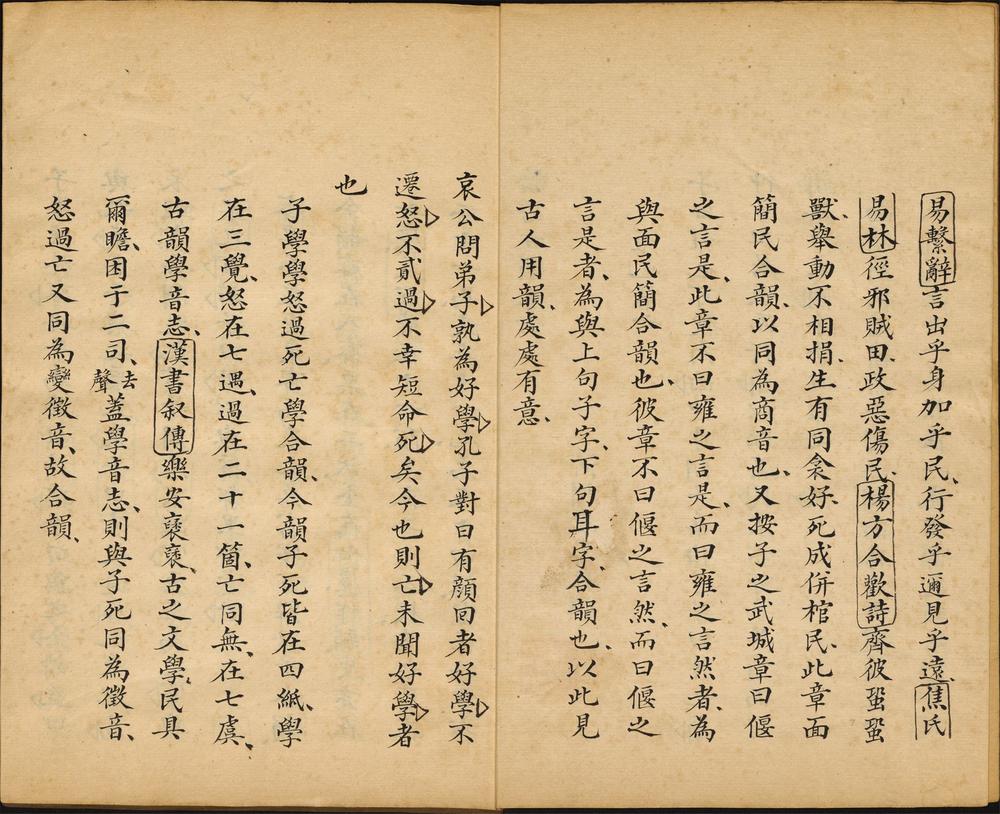 易繫辭言出乎身加乎民、行發乎邇見乎遠、焦氏
易林徑邪賊田、政惡傷民、楊方合歡詩齊彼蛩蛩
獸、舉動不相捐、生有同衾好、死成併棺民、此章面
簡民合韻、以同為商音也、又按子之武城章曰偃
之言是、此章不曰雍之言是、而曰雍之言然者、為
與面民簡合韻也、彼章不曰偃之言然、而曰偃之
言是者、為與上句子字、下句耳字、合韻也、以此見
古人用韻、處處有意、
哀公問弟子孰為好學孔子對曰有顏回者好學不
遷怒不貳過不幸短命死矣今也則亡未聞好學者
也
子學學怒過死亡學合韻、今韻子死皆在四紙、學
在三覺、怒在七遇、過在二十一箇、亡同無、在七虞、
古韻學音志、漢書叙傳樂安裒裒、古之文學、民具
爾瞻、困于二司、去聲蓋學音志、則與子死同為徵音、
怒過亡又同為變徵音、故合韻、